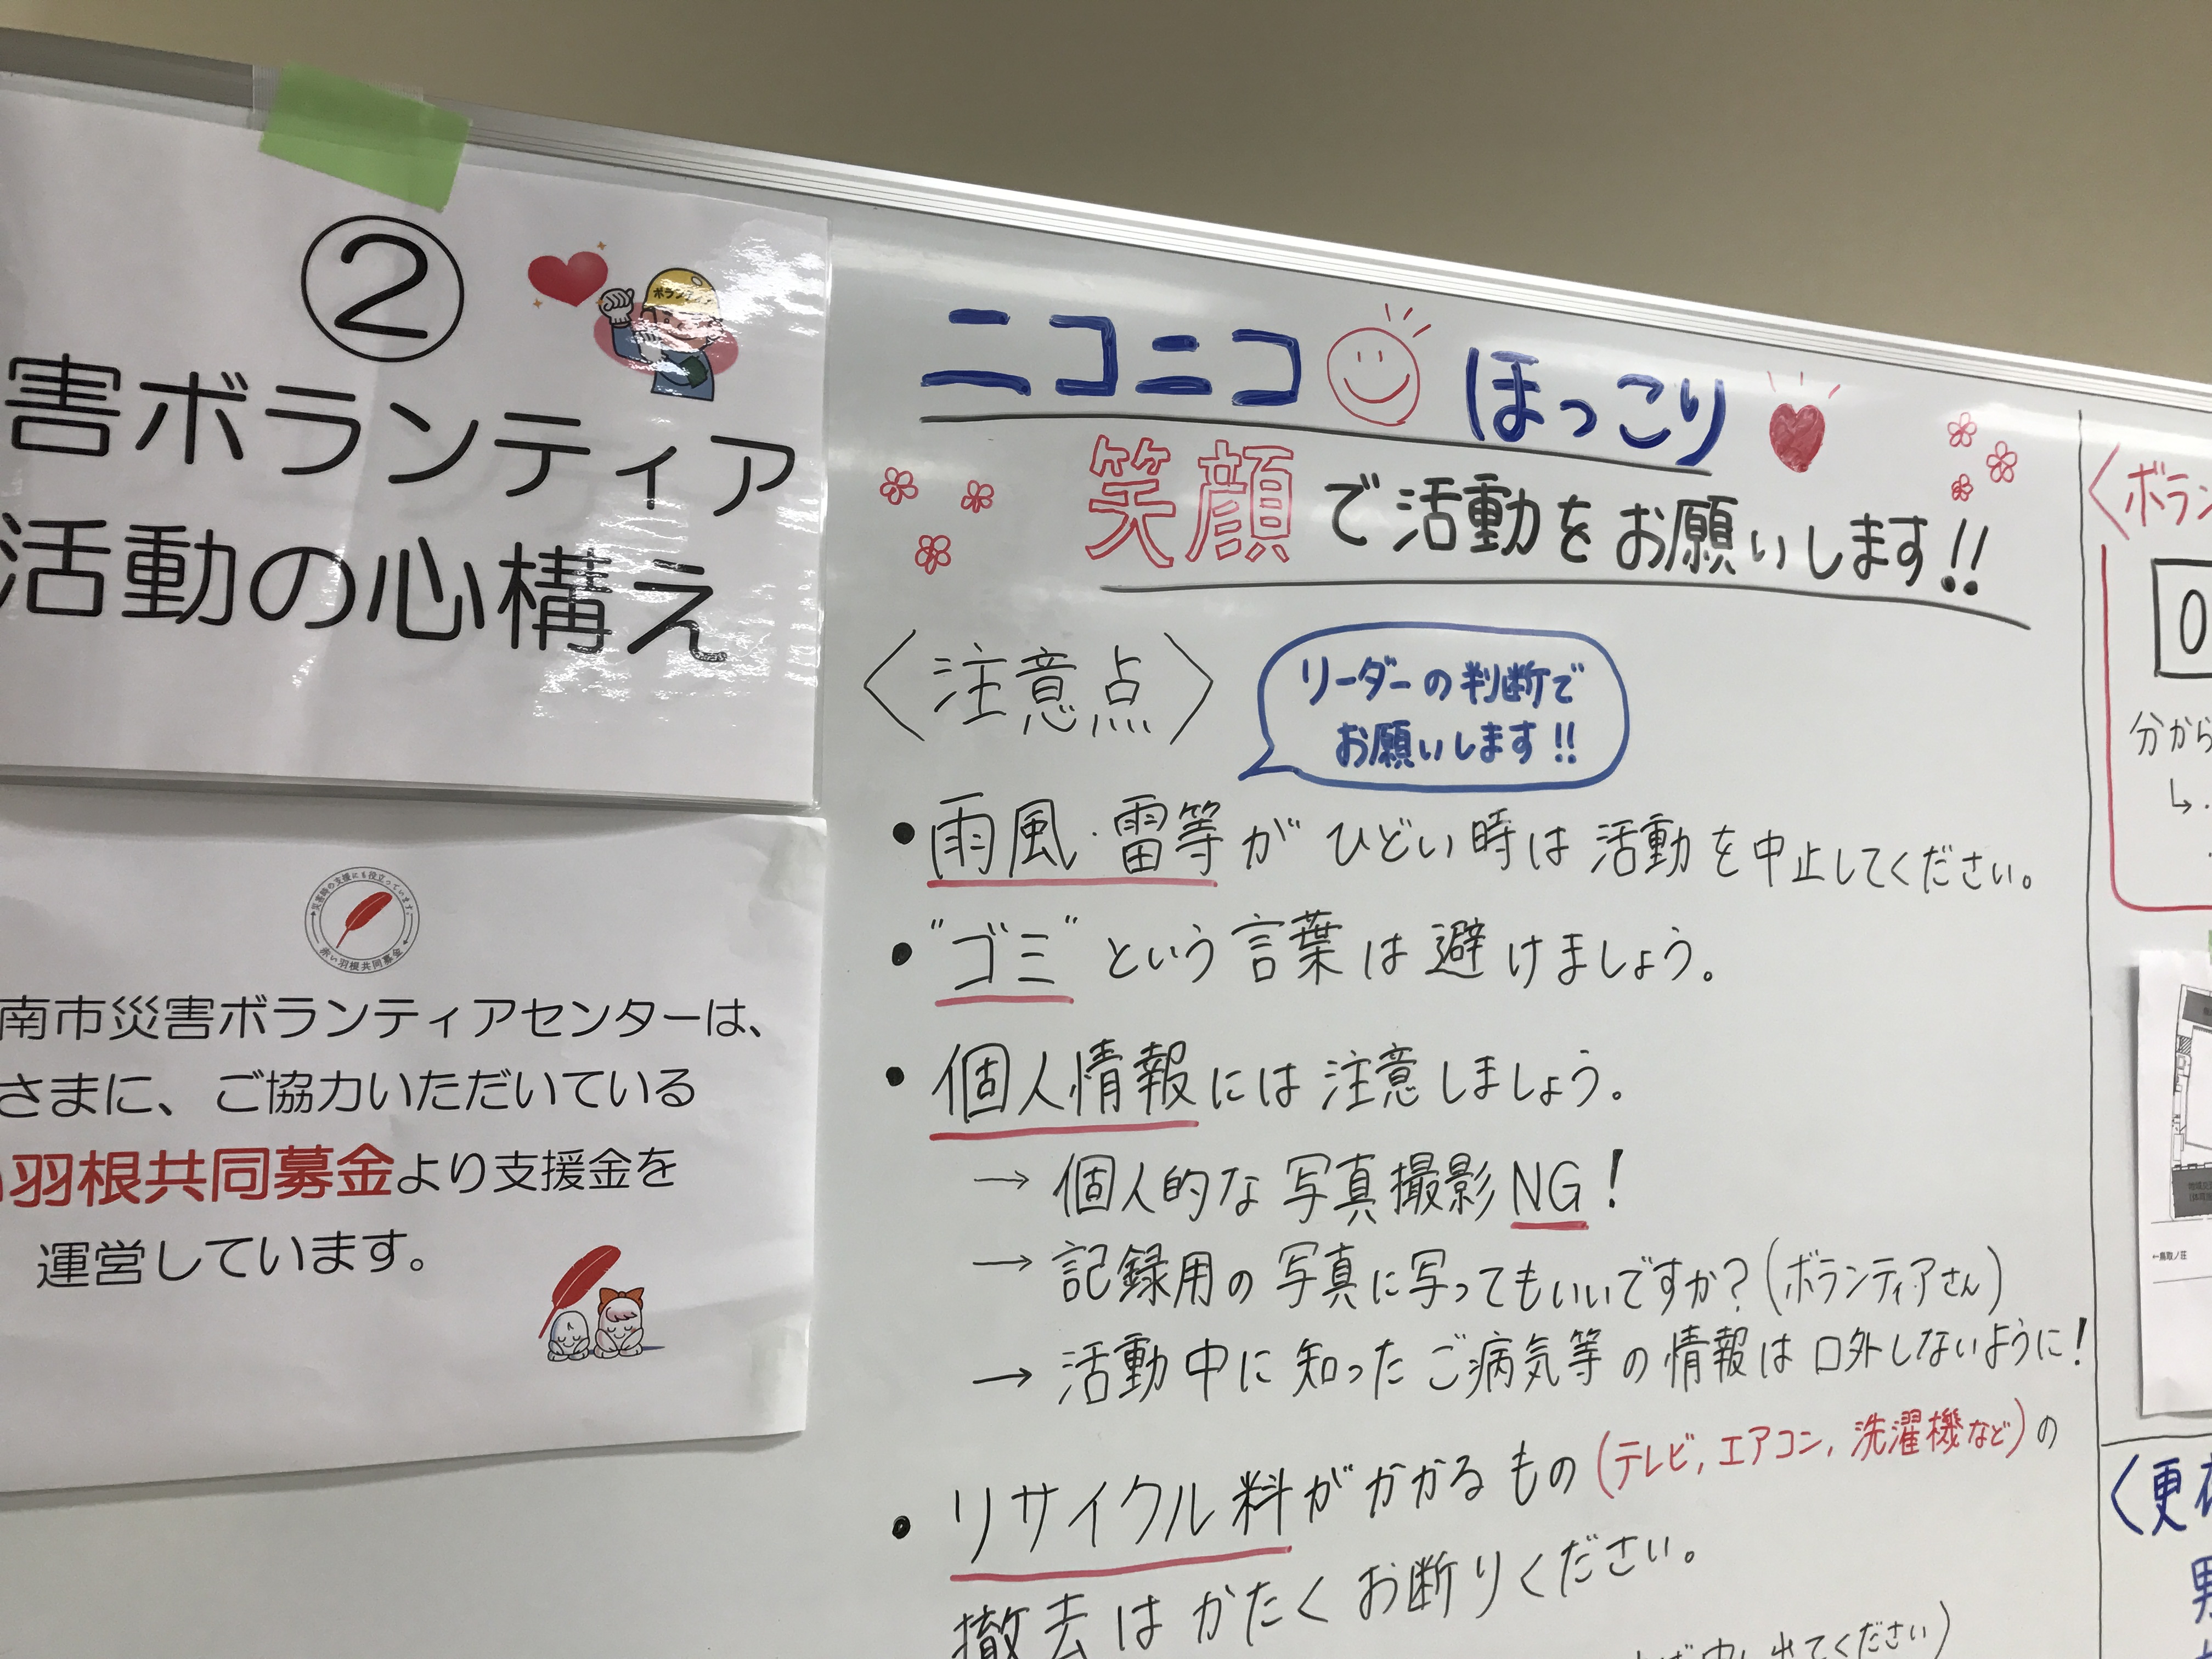 ②
害ボランティア
活動の心構え
ボランティア
災害時の支援にも役立っています。
赤い羽根共同募金
南市災害ボランティアセンターは、
さまに、ご協力いただいている
い羽根共同募金より支援金を
運営しています。
ニコニコ ほっこり
笑顔で活動をお願いします!!
〈注意点〉
リーダーの判断で
お願いします!!
・雨風・雷等がひどい時は活動を中止してください。
・"ゴミ"という言葉は避けましょう。
・個人情報には注意しましょう。
→ 個人的な写真撮影NG!
→ 記録用の写真に写ってもいいですか?(ボランティアさん)
→ 活動中に知ったご病気等の情報は口外しないように!
・リサイクル料がかかるもの(テレビ,エアコン,洗濯機など)の
撤去はかたくお断りください。
出てください)
〈ボラン
0
分から
↳
←鳥取ノ荘
〈更衣
男